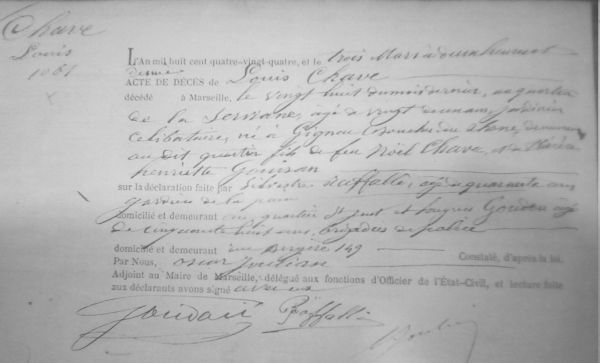 Chave
Louis
1061
L'An mil huit cent quatre-vingt-quatre, et le trois Mars à douze heures et
demie
ACTE DE DÉCÈS de Louis Chave
décédé à Marseille, le vingt huit du mois dernier, au quartier
de la âgé de vingt deux ans, jardinier
célibataire, né à Gignac Bouches du Rhône, demeurant
au dit quartier fils de feu Noël Chave, et de Claire
henriette
sur la déclaration faite par Silvestre Raffalli, âgé de quarante ans
gardien de la paix
domicilié et demeurant au quartier St Just et Goudon âgé
de cinquante huit ans, brigadier de police
domicilié et demeurant rue 149 Constaté, d'après la loi.
Par Nous, oscar Joulian
Adjoint au Maire de Marseille, délégué aux fonctions d'Officier de l'État-Civil, et lecture faite
aux déclarants avons signé avec eux
Raffalli